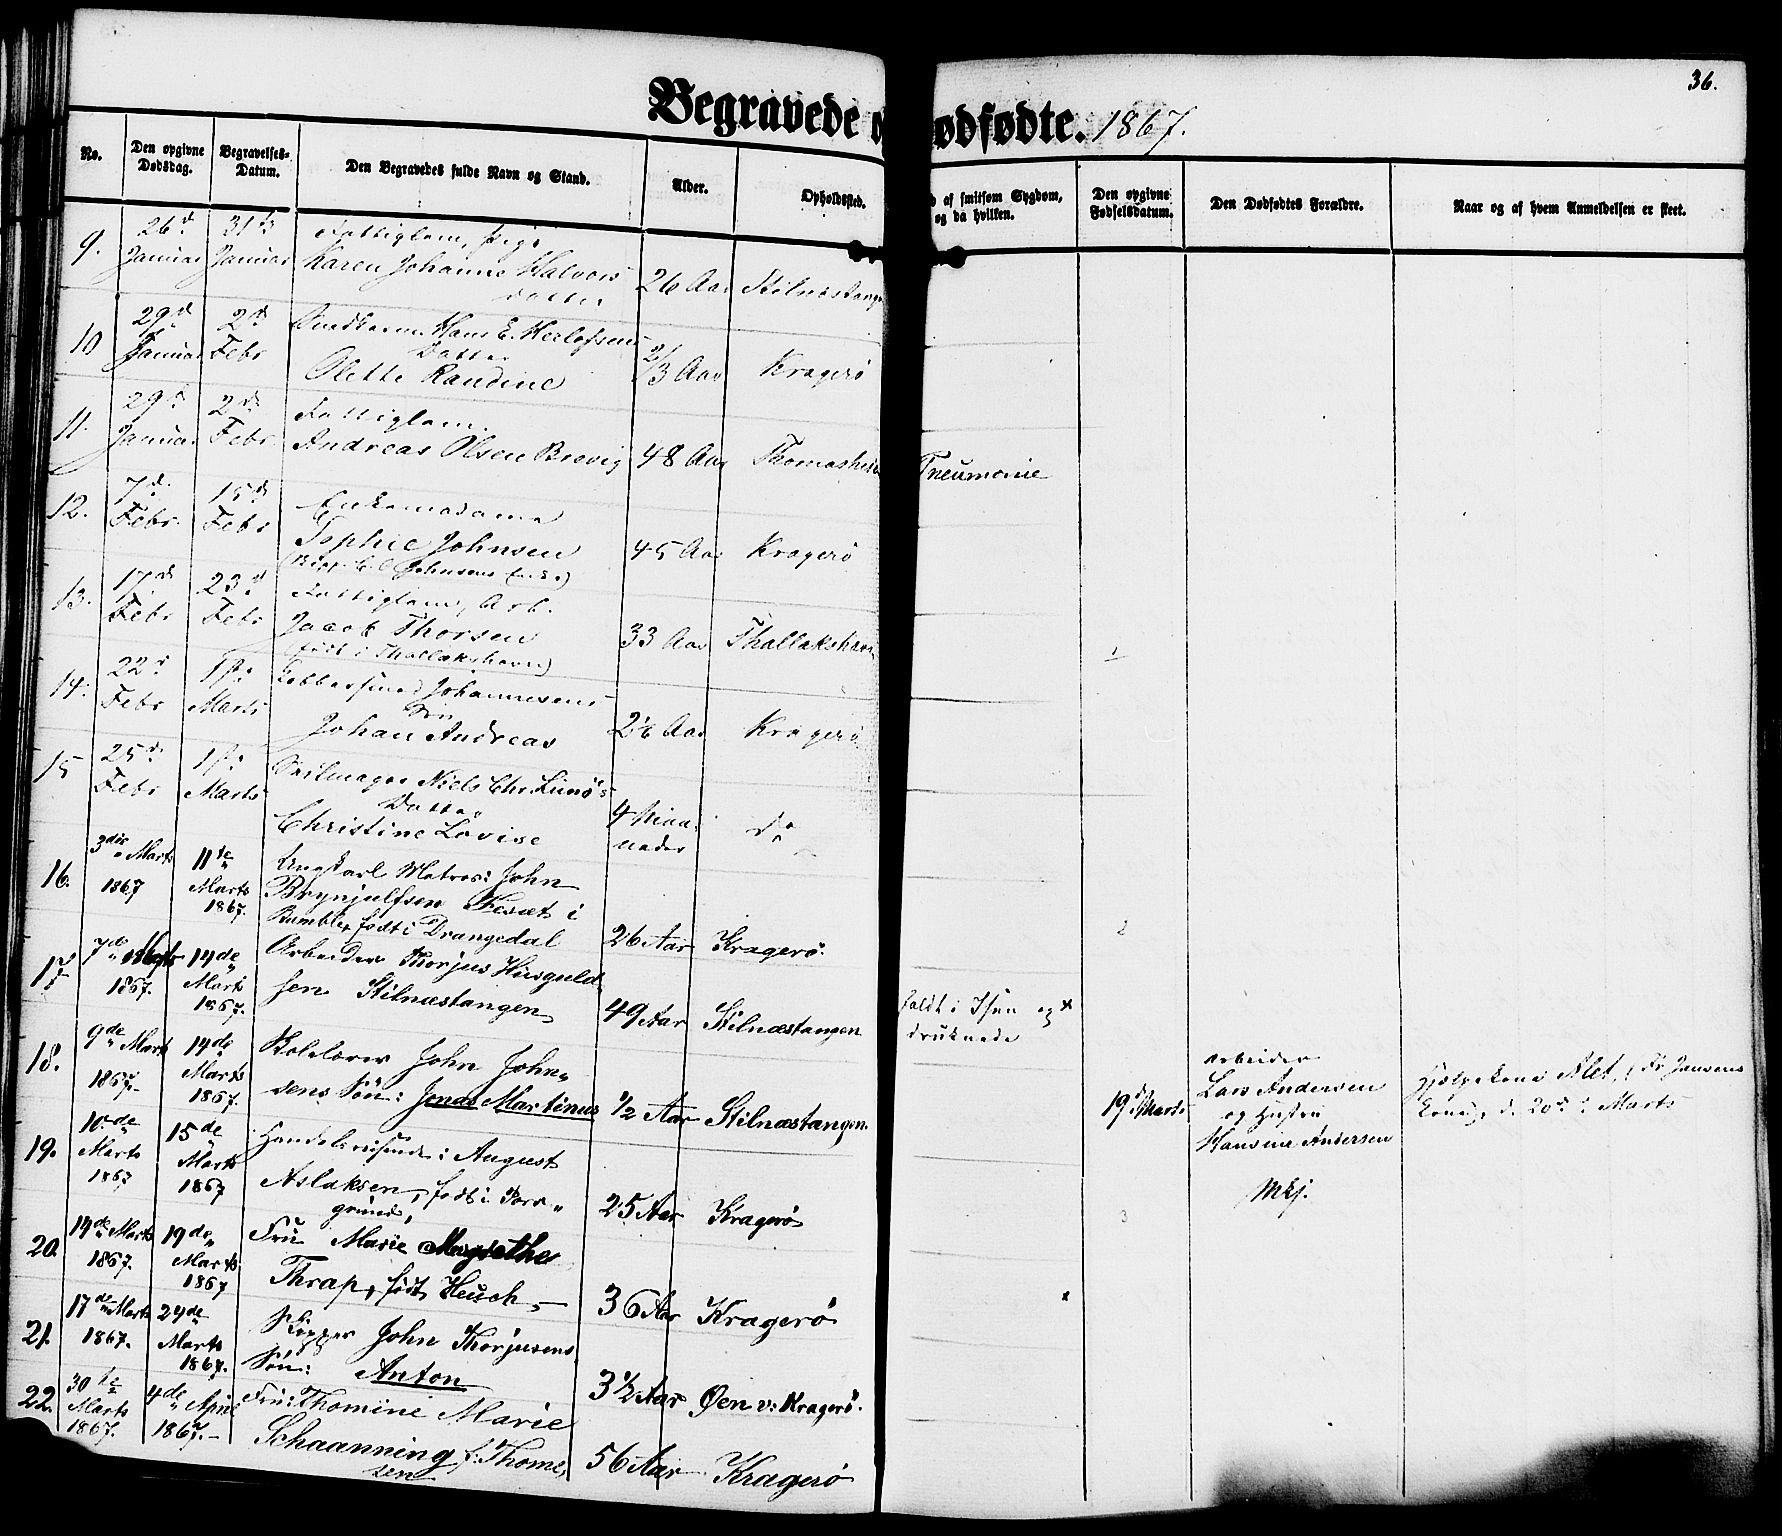 36.
Begravede o ødfødte. 1867.
No.
Den opgivne Dødsdag.
Begravelses-Datum.
Den Begravedes fulde Navn og Stand.
Alder.
Opholdssted.
d af smitsom Sygdom, og da hvilken.
Den opgivne Fødselsdatum.
Den Dødfødtes Forældre.
Naar og af hvem Anmeldelsen er skeet.
9.
26d Januar
31te Januar
Fattiglem, Pige
Karen Johanne Halvors
datter
26 Aar
Stilnæstangen
10
29d Januar
2d Febr
Hans E. Herlofsens
Datter
Olette Randine
2/3 Aar
Kragerø
11.
29d Januar
2d Febr.
Fattiglem.
Andreas Olsen Brevig
48 Aar
Pneumonie
12.
7d Febr.
15d Febr
Enkemadame
Sophie Johnsen
Johnsens Enke)
45 Aar
Kragerø
13.
17d Febr
23d Febr
Fattiglem, Arb.
Jacob Thorsen
(født i Thallakshavn)
33 Aar
Thallakshavn
1
14.
22d Febr
1ste Marts
Kobbersmed Johannesens
Søn
Johan Andreas
Aar
Kragerø
15
25d Febr
1ste Marts
Seilmager Niels Chr. Lunøs
Datter
Christine Lovise
4 Maaneder
do
16.
3die Marts 1867
11te Marts 1867.
Ungkarl Matros: John
Brynjulfsen Fesæt i
Bamble, født i Drangedal
26 Aar
Kragerø.
2
17
7de Marts 1867.
14de Marts 1867.
Arbeider Thorjus Husguld-
sen Stilnæstangen
49 Aar
Stilnæstangen
faldt i Isen og
druknede
18.
9de Marts 1867.
14de Marts 1867.
John John-
sens Søn: Jonas Martinus
1/2 Aar
Stilnæstangen.
19de Marts
Arbeider
Lars Andersen
og Hustru
Hansine Andersen
Hjelpekone Alet, Fr Jansens
Kone, d. 20d Marts
19.
10de Marts 1867
15de Marts 1867
Handelsreisende: August
Aslaksen, født i Pors-
grund,
25 Aar
Kragerø
3
20.
14de Marts 1867.
19de Marts 1867
Fru Marie Magrethe
Thrap, født Heuch,
36 Aar
Kragerø
21.
17de Marts 1867.
24de Marts 1867.
Skipper John Thorjusens
Søn: Anton
3 1/2 Aar
Øen v: Kragerø.
22.
30te Marts 1867.
4de April 1867.
Fru: Thomine Marie
Schaanning f: Thome-
sen
56 Aar
Kragerø